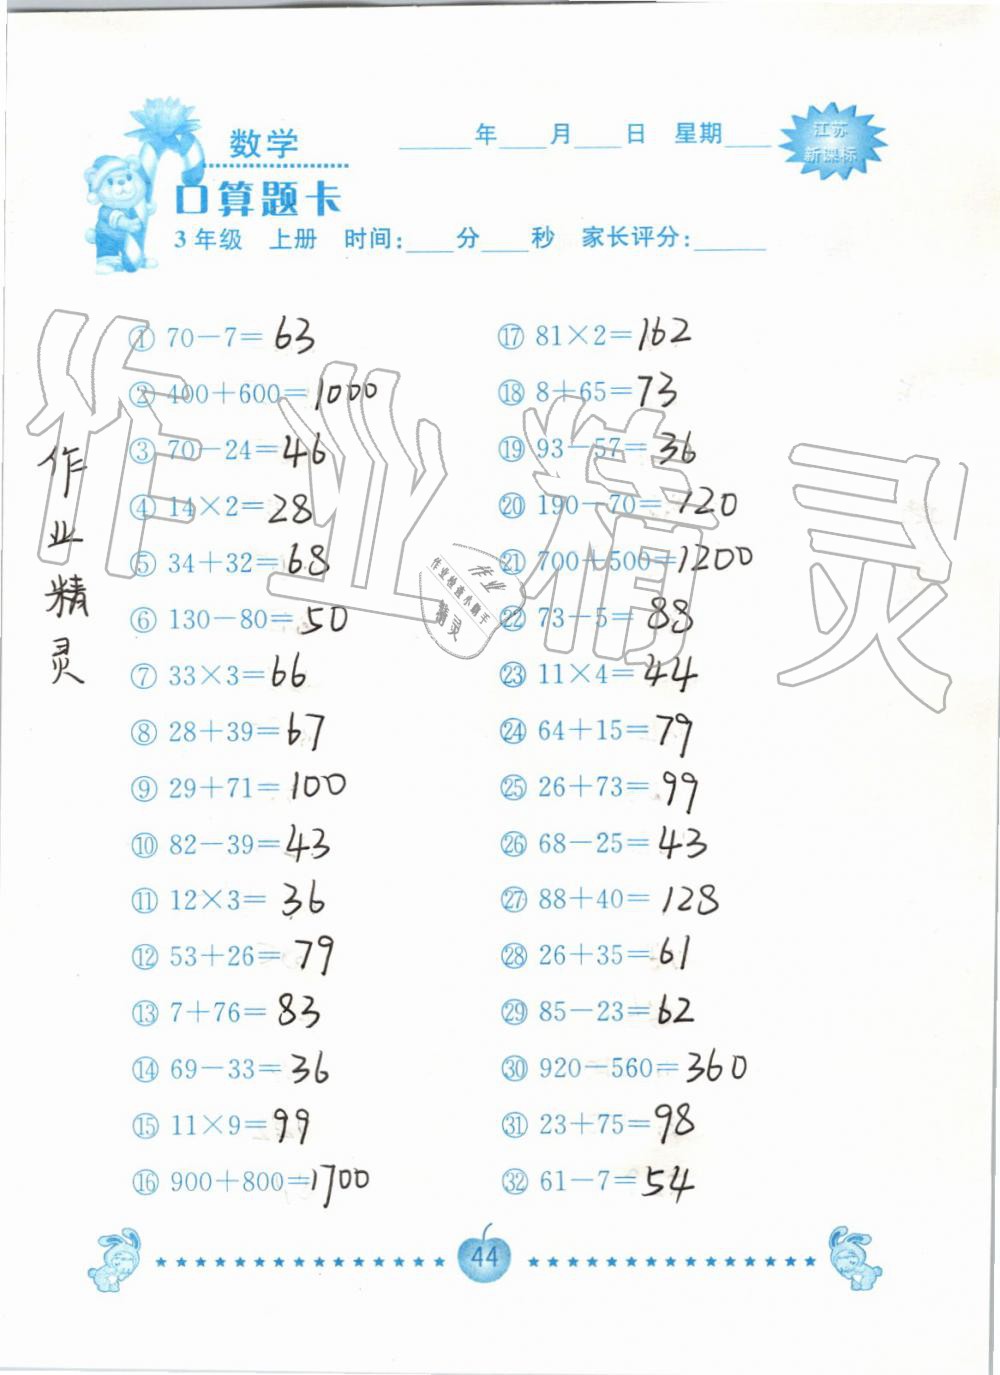 数学
口算题卡
____年____月____日 星期____
江苏
新课标
3年级 上册 时间:____分____秒 家长评分:______
① 70－7＝63
② 400＋600＝1000
③ 70－24＝46
④ 14×2＝28
⑤ 34＋32＝68
⑥ 130－80＝50
⑦ 33×3＝66
⑧ 28＋39＝67
⑨ 29＋71＝100
⑩ 82－39＝43
⑪ 12×3＝36
⑫ 53＋26＝79
⑬ 7＋76＝83
⑭ 69－33＝36
⑮ 11×9＝99
⑯ 900＋800＝1700
⑰ 81×2＝162
⑱ 8＋65＝73
⑲ 93－57＝36
⑳ 190－70＝120
㉑ 700＋500＝1200
㉒ 73－5＝88
㉓ 11×4＝44
㉔ 64＋15＝79
㉕ 26＋73＝99
㉖ 68－25＝43
㉗ 88＋40＝128
㉘ 26＋35＝61
㉙ 85－23＝62
㉚ 920－560＝360
㉛ 23＋75＝98
㉜ 61－7＝54
作业精灵
作业精灵
作业
作业检查小助手
精灵
44